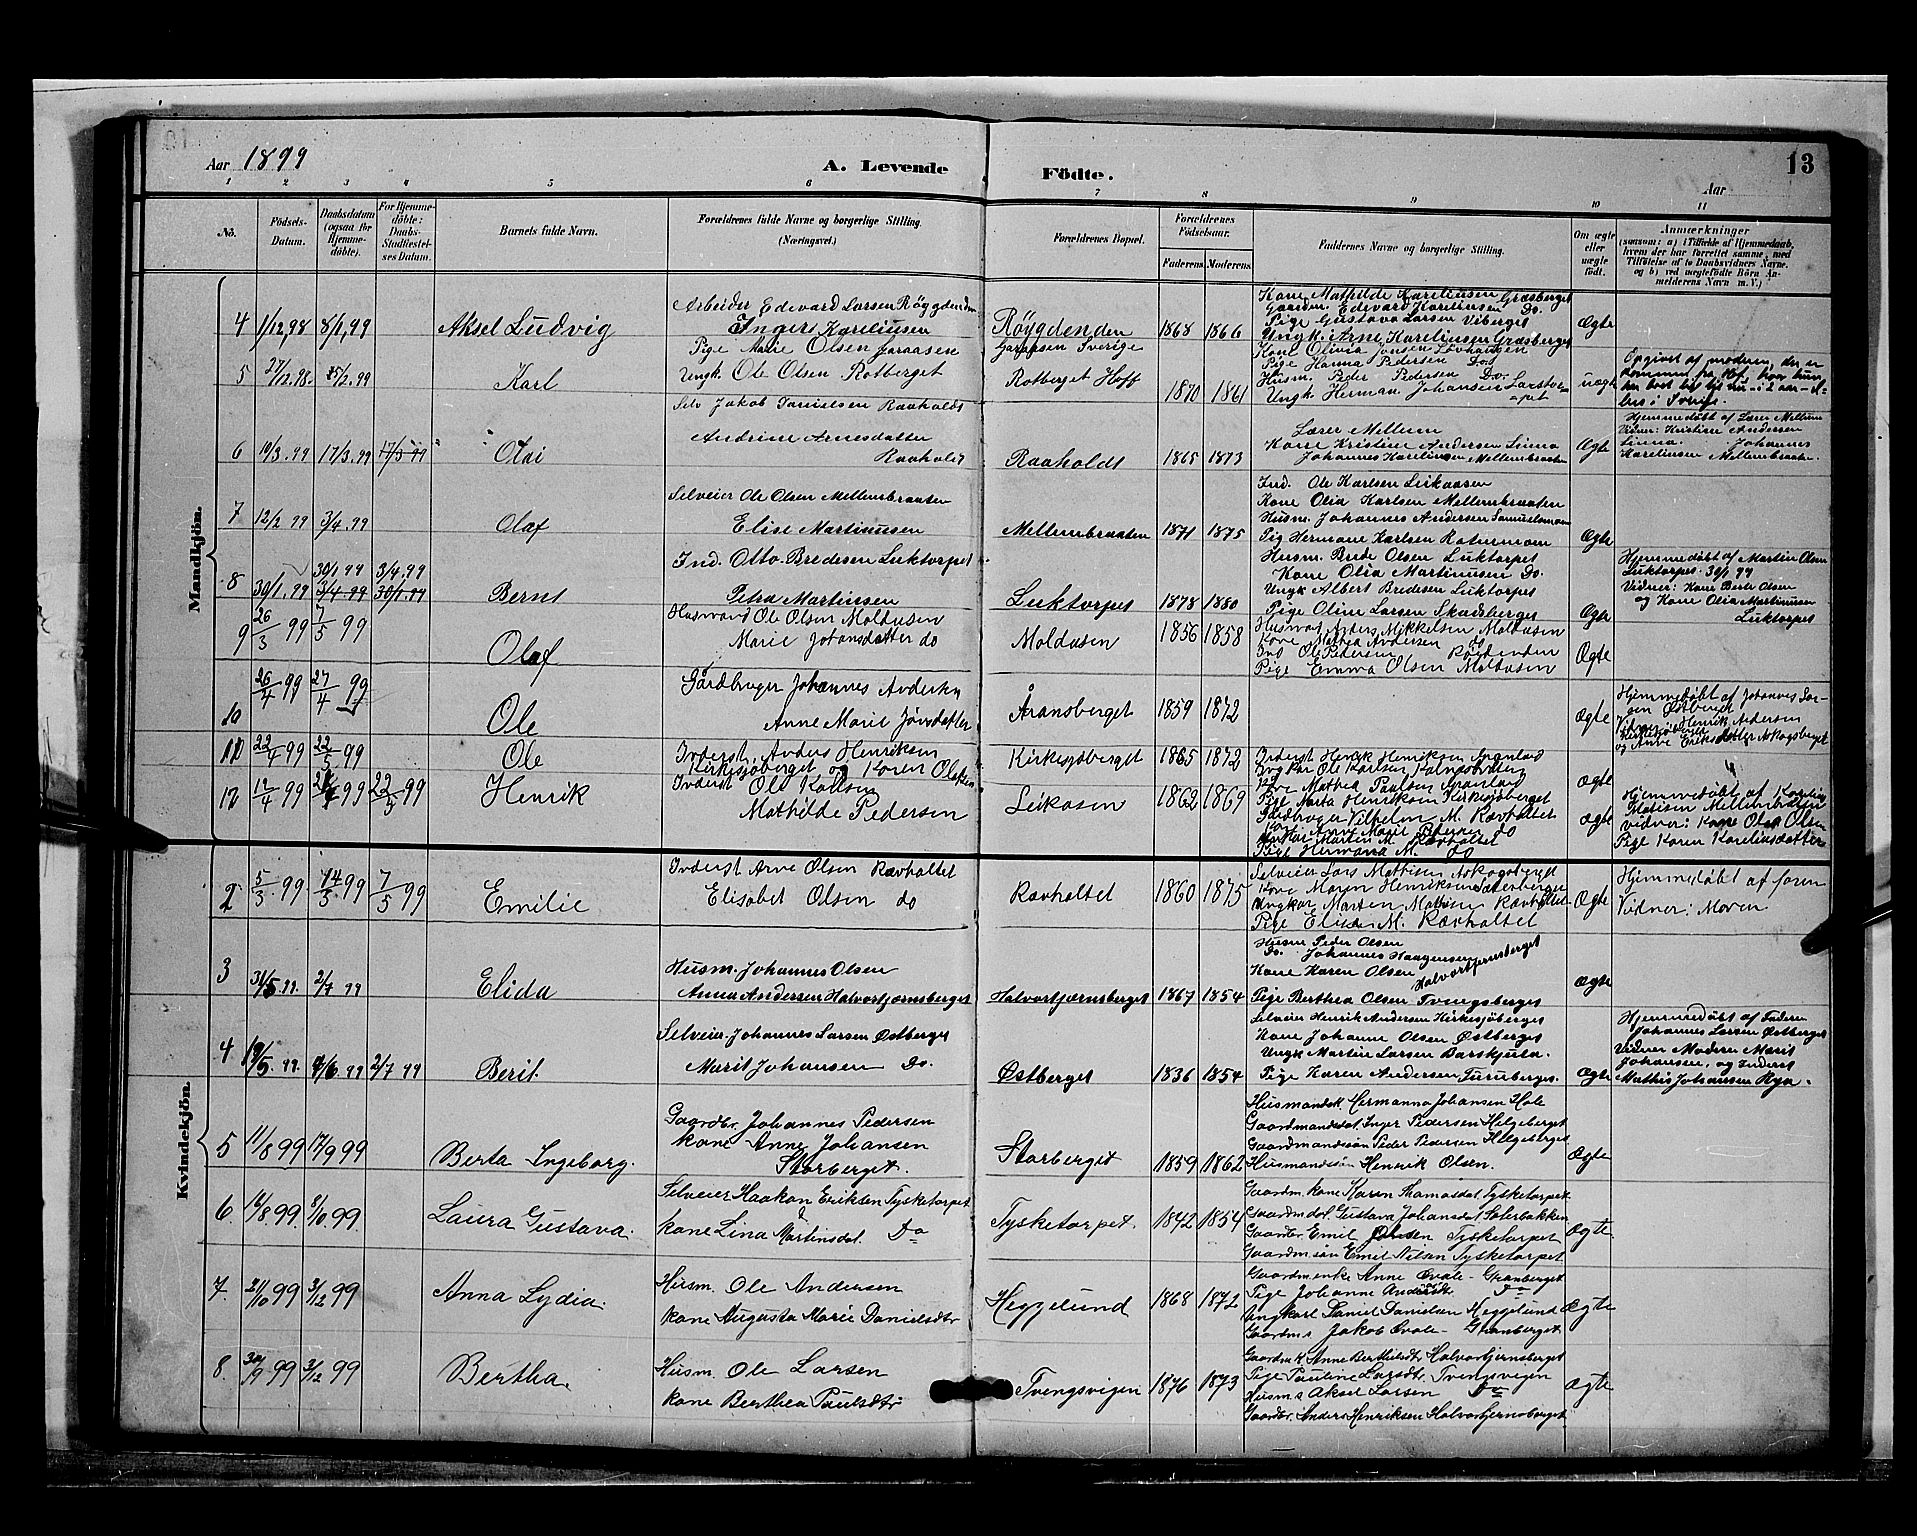 Aar 1899
A. Levende Födte.
Aar
13
1 2 3 4 5 6 7 8 9 10 11
No.
Födsels-Datum.
Daabsdatum (ogsaa for Hjemme-döbte).
For Hjemme-döbte: Daabs-Stadfæstel-ses Datum.
Barnets fulde Navn.
Forældrenes fulde Navne og borgerlige Stilling. (Næringsvei.)
Forældrenes Bopæl.
Forældrenes Födselsaar.
Faderens Moderens
Faddernes Navne og borgerlige Stilling.
Om ægte eller uægte födt.
Anmærkninger
(saasom: a) i Tilfælde af Hjemmedaab, hvem der har forrettet samme, med Tilföielse af to Daabsvidners Navne. og b) ved uægtefödte Börn An-melderens Navn m. V.)
Mandkjön.
4 1/12,98 8/1,99 Aksel Ludvig
Arbeider Edevard Larsen Röygdenden
Inger Kareliusen
Röygdenden 1868 1866
Kone Mathilde Kareliusen Græsberget
Gaardm. Edevard Kareliusen Do.
Pige Gustava Larsen Viberget
Ungk. Arne Kareliusen Græsberget
Ægte
5 27/12.98. 25/2.99 Karl
Pige Marie Olsen Garaasen
Ungk. Ole Olsen Rotberget
Garaasen Sverige
Rotberget Hoff 1870 1861
Kone Olivia Jonsen Lövhaugen
Pige Hanna Pedersen Do.
Husm. Peder Pedersen Do.
Ungk. Herman Johansen Larstorpet
uægte
Opgivet af moderen, der er kommen fra
6 10/3.99 17/3.99 17/5 99 Otai
Selv Jakob Danielsen Ravholdt
Andrine Arnesdatter
Ravholdt
Raaholdt 1865 1873
Lærer Mellem
Kone Kristine Andersen Linna
Johannes Karelinsen Mellembraaten
Ægte
Hjemmedöbt af Lærer Mellum
Vidner: Kristine Andersen
Linna. Johannes
Karelinsen Mellembraaten.
7 12/2 99 3/4.99 Olaf
Selveier Ole Olsen Mellembraaten
Elise Martinusen
Mellembraaten 1871 1875
Ind. Ole Karlsen Leikaasen
Kone Olia Karlsen Mellembraaten
Husm. Johannes Andersen Samuelsmoen
Pig Hermane Karlsen Rotnemoen
Ægte
8 30/1.99 30/1 99 3/4 99 3/4.99 30/1.99 Bernt
Ind. Otto Bredesen Luktorpet
Petra Martinsen
Luktorpet 1878 1880
Husm. Brede Olsen Luktorpet
Kone Olia Martinusen Do.
Ungk Albert Bredesen Luktorpet
Pige Oline Larsen Skadsberget
Ægte
Hjemmedöbt af Martin Olsen
Luktorpet. 30/1 99
Vidner: Kone Berte Olsen
og Kone Olia Martinusen
Luktorpet
9 26/3 99 7/5 99 Olaf
Husmand Ole Olsen Moldusen
Marie Johansdatter do
Moldusen 1856 1858
Husmand Anders Mikkelsen Moldusen
Kone Mathea Andersen do
Ind Ole Pedersen Röidenden
Pige Emma Olsen Moldusen
Ægte
10 26/4 99 27/4 99 Ole
Gardbruger Johannes Anderssen
Anne Marie Jönsdatter
Åransberget 1859 1872
Ægte
Hjemmedöbt af Johannes Lar-
sen Östberget
Vidner: Henrik Andersen
og Anne Eriksdatter Askogsberget
11 22/4 99 22/5 99 Ole
Inderst. Anders Henriksen
Kirkesjöberget og Karen Olsen
Kirkesjöberget 1865 1872
Inderst Henrik Henriksen Granlad
Ungkar Ole Karlsen
Kone Mathea Paulsen Granlad
Pige Marta Henriksen Kirkesjöberget
Ægte
12 12/4 99 99 22/5 99 Henrik
Inderst Ole Karlsen
Mathilde Pedersen
Leikasen 1862 1869
Gardbruger Vilhelm M. Rævholtet
Kone Anne Marie Pedersen do
Ungkar Martin M. Rævholtet
Pige Hermana M. do
ægte
Hjemmedöbt af Karelius
Madsen Mellembraten
vidner: Kone Olea Olsen
Pige Karen Karelinsdatter
Kvindekjön.
2 5/3.99 14/3.99 7/5 99 Emilie
Inderst Arne Olsen Rævholtet
Elisabet Olsen do
Rævholtet 1860 1875
Selveier Lars Mathisen Askogsberget
Kone Maren Henriksen Sæterberget
Ungkar Morten Mathisen Rævholtet
Pige Elise M. Rævholtet
Ægte
Hjemmedöbt af faren
Vidner: Moren
3 31/5.99. 2/7 99 Elida
Husm. Johannes Olsen
Anna Andersen Halvortjernsberget
Halvortjernsberget 1867 1854
Husm Peder Olsen
Do. Johannes Haagensen
Kone Karen Olsen Halvortjernsberget
Pige Berthea Olsen Tvengsberget
Ægte
4 19/5.99. 4/6 99 2/7 99 Berit.
Selveier Johannes Larsen Östberget
Marit Johansen Do.
Östberget 1836 1854
Selveier Henrik Andersen Kirkesjöberget
Kone Johanne Olsen Östberget
Ungk Martin Larsen Barskjula.
Pige Karen Andersen Furuberget.
Ægte
Hjemmedöbt af Faderen
Johannes Larsen Östberget
Vidner Moderen Marit
Johansen, og Inderst
Mathis Johansen Rya.
5 11/8 99 17/9 99 Berta Ingeborg.
Gaardbr. Johannes Pedersen
kone Anne Johansen
Storberget.
Storberget 1859 1862
Husmandsk. Hermanna Johansen Hole
Gaardmandsdat. Inger Pedersen Helgeberget
Gaardmandssön Peder Pedersen Helgeberget
Husmandssön Henrik Olsen.
Ægte
6. 14/8 99. 8/10 99. Laura Gustava.
Selveier Haakon Eriksen Tysketorpet
kone Lina Martinsdat. Do
Tysketorpet. 1842 1854
Gaardm. kone Karen Thomasdat. Tysketorpet
Gaardm.dat. Gustava Johansdat. Säterbakken
Gaardbr. Emil Olsen Tysketorpet
Gaardm.sön Emil Nilsen Tysketorpet
Ægte.
7. 2/10 99 3/12 99 Anna Lydia.
Husm. Ole Andersen
kone Augusta Marie Danielsdtr
Heggelund 1868 1872
Gaardm.enke Anne Ovale- Granberget
Pige Johanne Andersdtr. Do
Ungkarl Daniel Danielsen Heggelund
Gaardm.s Jakob Ovale- Granberget.
Ægte
8. 30/9 99 3/12 99 Bertha.
Husm. Ole Larsen
kone Berthea Paulsdtr
Tvengsvigen 1876 1873
Gaardm.k Anne Berthulsdtr Halvortjernsberget
Pige Pauline Larsdtr. Tvengsvigen
Husm.s Aksel Larsen Do
Gaardbr. Anders Henriksen Halvortjernsberget.
Ægte